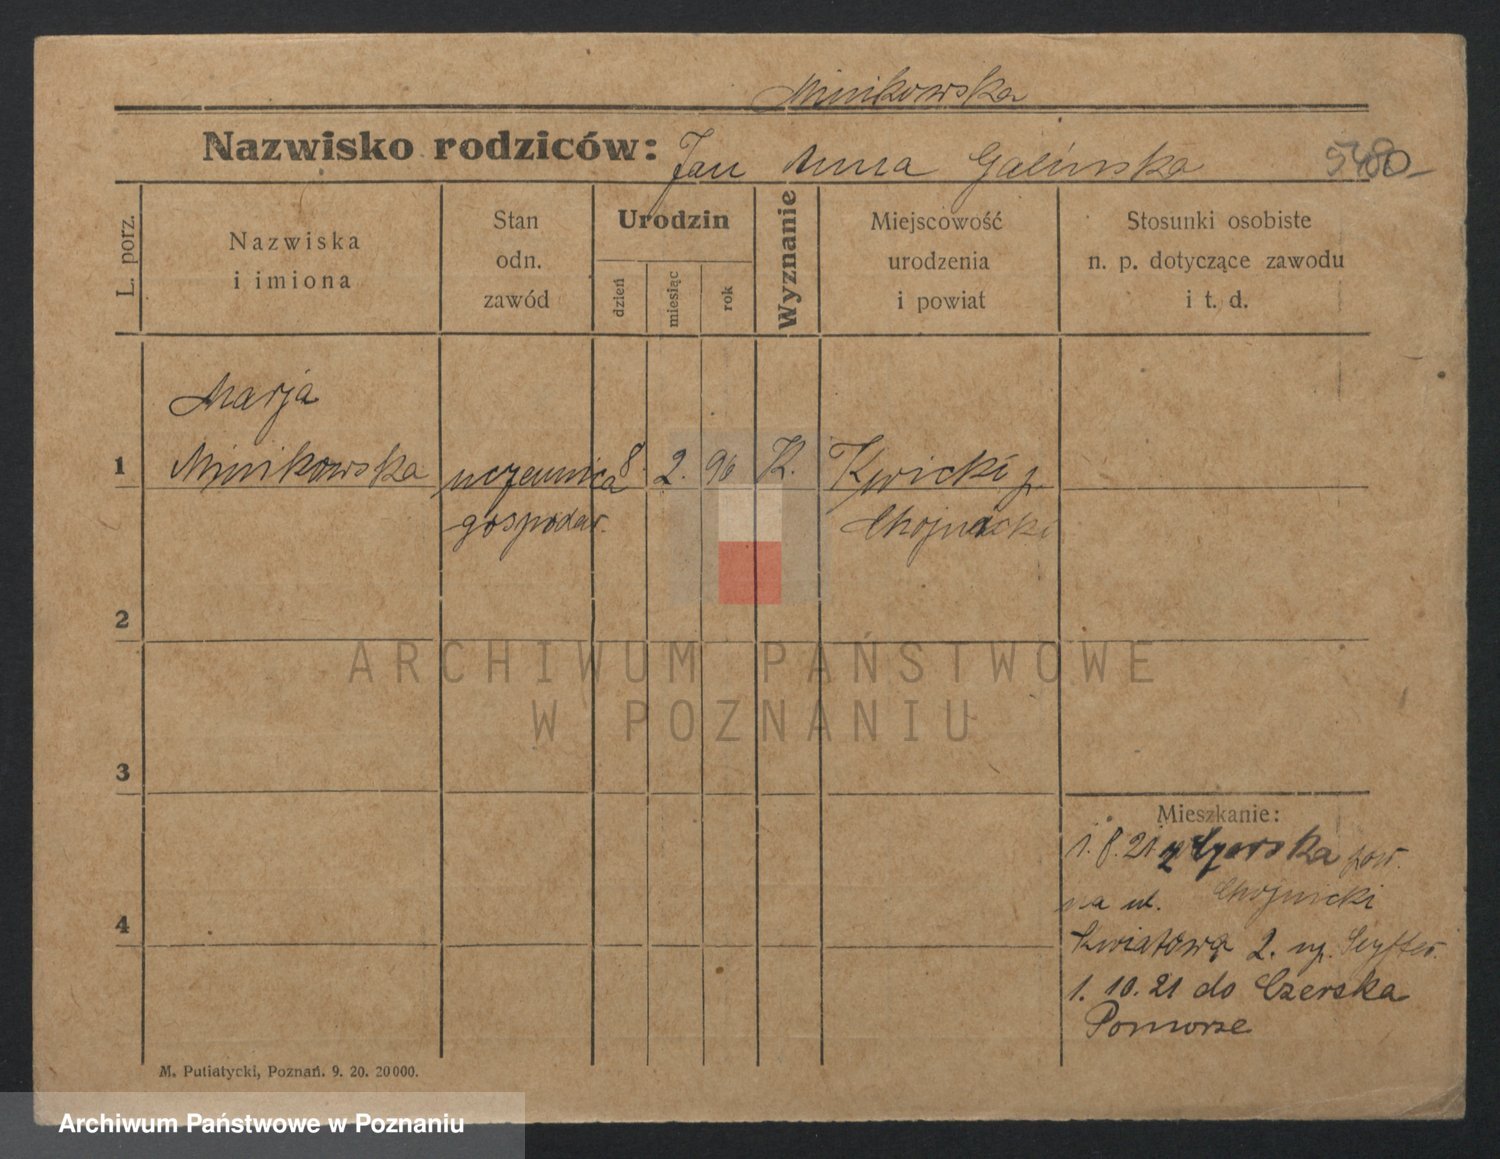 Minikowska
Nazwisko rodziców: Jan Anna Galińska
L. porz.
Nazwiska
i imiona
Stan
odn.
zawód
Urodzin
dzień
miesiąc
rok
Wyznanie
Miejscowość
urodzenia
i powiat
Stosunki osobiste
n. p. dotyczące zawodu
i t. d.
Marja
1 Minikowska uczennica 8. 2. 96 K.
gospodar. Chojnicki
2
ARCHIWUM PAŃSTWOWE
W POZNANIU
3
Mieszkanie:
1. 8. 21 z Czerska pow.
na ul. Chojnicki
4
Kwiatową 2.
1. 10. 21 do Czerska
Pomorze
M. Putiatycki, Poznań. 9. 20. 20 000.
Archiwum Państwowe w Poznaniu